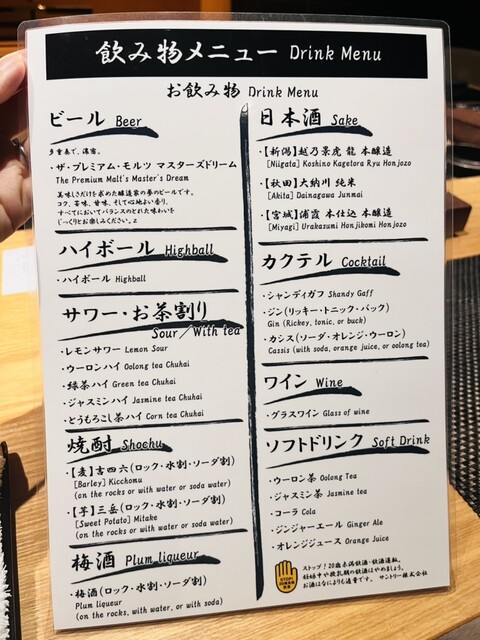 飲み物メニュー Drink Menu
お飲み物 Drink Menu
ビール Beer
多重奏で、濃密。
・ザ・プレミアム・モルツ マスターズドリーム
The Premium Malt's Master's Dream
美味しさだけを求めた醸造家の夢のビールです。
コク、苦味、甘味、そして心地よい香り。
すべてにおいてバランスのとれた味わいを
じっくりとお楽しみください。z
ハイボール Highball
・ハイボール Highball
サワー・お茶割り
Sour／With tea
・レモンサワー Lemon Sour
・ウーロンハイ Oolong tea Chuhai
・緑茶ハイ Green tea Chuhai
・ジャスミンハイ Jasmine tea Chuhai
・とうもろこし茶ハイ Corn tea Chuhai
焼酎 Shochu
・【麦】吉四六(ロック・水割・ソーダ割)
[Barley] Kicchomu
(on the rocks or with water or soda water)
・【芋】三岳(ロック・水割・ソーダ割)
[Sweet Potato] Mitake
(on the rocks or with water or soda water)
梅酒 Plum liqueur
・梅酒(ロック・水割・ソーダ割)
Plum liqueur
(on the rocks, with water, or with soda)
日本酒 Sake
・【新潟】越乃景虎 龍 本醸造
[Niigata] Koshino Kagetora Ryu Honjozo
・【秋田】大納川 純米
[Akita] Dainagawa Junmai
・【宮城】浦霞 本仕込 本醸造
[Miyagi] Urakasumi Honjikomi Honjozo
カクテル Cocktail
・シャンディガフ Shandy Gaff
・ジン(リッキー・トニック・バック)
Gin (Rickey, tonic, or buck)
・カシス(ソーダ・オレンジ・ウーロン)
Cassis (with soda, orange juice, or oolong tea)
ワイン Wine
・グラスワイン Glass of wine
ソフトドリンク Soft Drink
・ウーロン茶 Oolong Tea
・ジャスミン茶 Jasmine tea
・コーラ Cola
・ジンジャーエール Ginger Ale
・オレンジジュース Orange Juice
STOP!
ストップ！20歳未満飲酒・飲酒運転。
妊娠中や授乳期の飲酒はやめましょう。
お酒はなによりも適量です。 サントリー株式会社